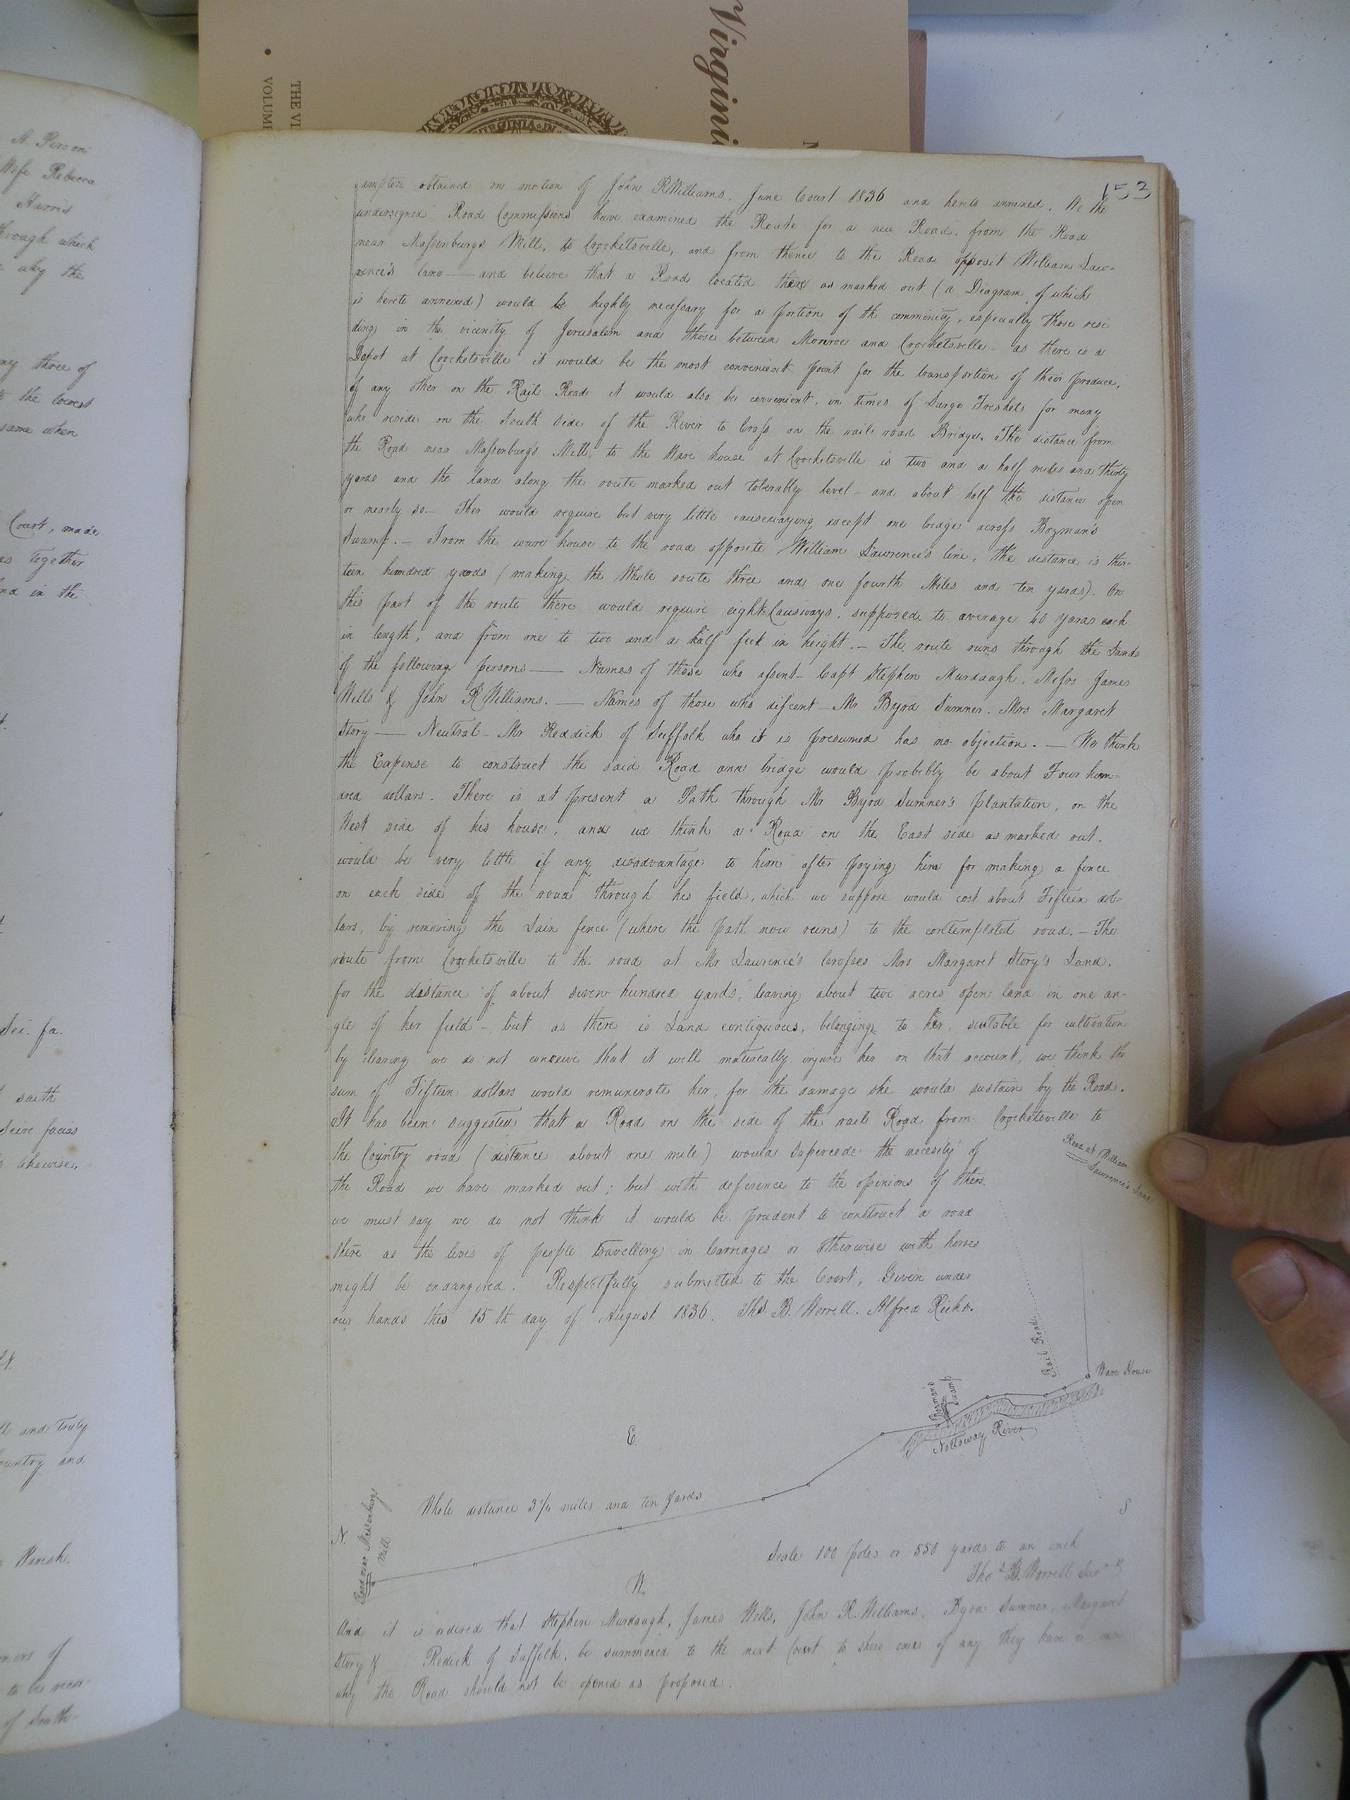 Virgini
THE VI
VOLUME
VIRGINIA
A. Person
Wife Rebecca
Harris
through which
why the
any three of
to the lowest
same when
Court, made
es together
nd in the
Sci. fa.
saith
Scire facias
likewise,
and truly
ountry and
Parish.
of
to be recor-
of South-
153
obtained on motion of John R. Williams. June Court 1836 and hereto annexed. We the
undersigned Road Commissions have examined the Route for a new Road, from the Road
near Massenburgs Mill, to Crocketsville, and from thence to the Road opposit William Law-
rence's lane — and believe that a Road located there as marked out (a Diagram of which
is hereto annexed) would be highly necessary for a portion of the comminity, especially those resi
ding in the vicinity of Jerusalem and those between Monroe and Crocketsville - as there is a
Depot at Crocketsville it would be the most convenient point for the transportion of their produce,
of any other on the Rail Road it would also be convenient, in times of Large Freshets for many
who reside on the South side of the River to Cross on the rail road Bridge. The distance from
the Road near Massenburg's Mill, to the Ware house at Crocketsville is two and a half miles and thirty
yards and the land along the route marked out tolerably level - and about half the distance open
or nearly so - Ther would require but very little causewaying except one bridge across Bozman's
Swamp. - From the ware house to the road opposite William Lawrence's line, the distance is thir-
teen hundred yards (making the Whole route three and one fourth Miles and ten yards). On
this part of the route there would require eight Causways, supposed to average 40 yards each
in length, and from one to two and a half feet in height. - The route runs through the Lands
of the following persons — Names of those who assent - Capt Stephen Murdaugh, Messrs James
Wells & John R Williams. — Names of those who discent - Mr Byrd Sumner. Mrs Margaret
Story — Neutral - Mr Reddick of Suffolk who it is presumed has no objection. — We think
the Expense to construct the said Road and bridge would probibly be about Four hun-
dred dollars. There is at present a Path through Mr Byrd Sumner's plantation, on the
West side of his house, and we think a Road on the East side as marked out,
would be very little if any disadvantage to him after paying him for making a fence
on each side of the road through his field, which we suppose would cost about Fifteen dol-
lars, by removing the Lain fence (where the path now runs) to the contemplated road. - The
route from Crocketsville to the road at Mr Lawrence's Crosses Mrs Margaret Story's Land,
for the distance of about seven hundred yards, leaving about two acres open land in one an-
gle of her field -, but as there is Land contiguous, belonging to her, suitable for cultivation
by clearing we do not conceive that it will materially injure her on that account, we think the
sum of Fifteen dollars would remunerate her, for the damage she would sustain by the Road.
It has been suggested that a Road on the side of the rail Road from Crocketsville to
the Country road (distance about one mile) would supercede the necesity of
the Road we have marked out; but with deference to the opinions of others
we must say we do not think it would be prudent to construct a road
there as the lives of people travelling in Carriages or otherwise with horses
might be endangered. Respectfully submitted to the Court, Given under
our hands this 15th day of August 1836. Ths. B. Worrell. Alfred Ricks.
Road at William
Lawrence's Lane
Rail Road
Ware House
Bozman's
Swamp
Nottoway River
E
Whole distance 3¼ miles and ten yards
N.
Road near Massenburgs
Mill
S
Scale 100 poles or 550 yards to an inch
Thos. B. Worrell Surr
W.
And it is ordered that Stephen Murdaugh, James Wells, John R. Williams, Byrd Sumner, Margaret
Story & Redick of Suffolk, be summoned to the next Court to shew caus if any they have or can
why the Road should not be opened as proposed.